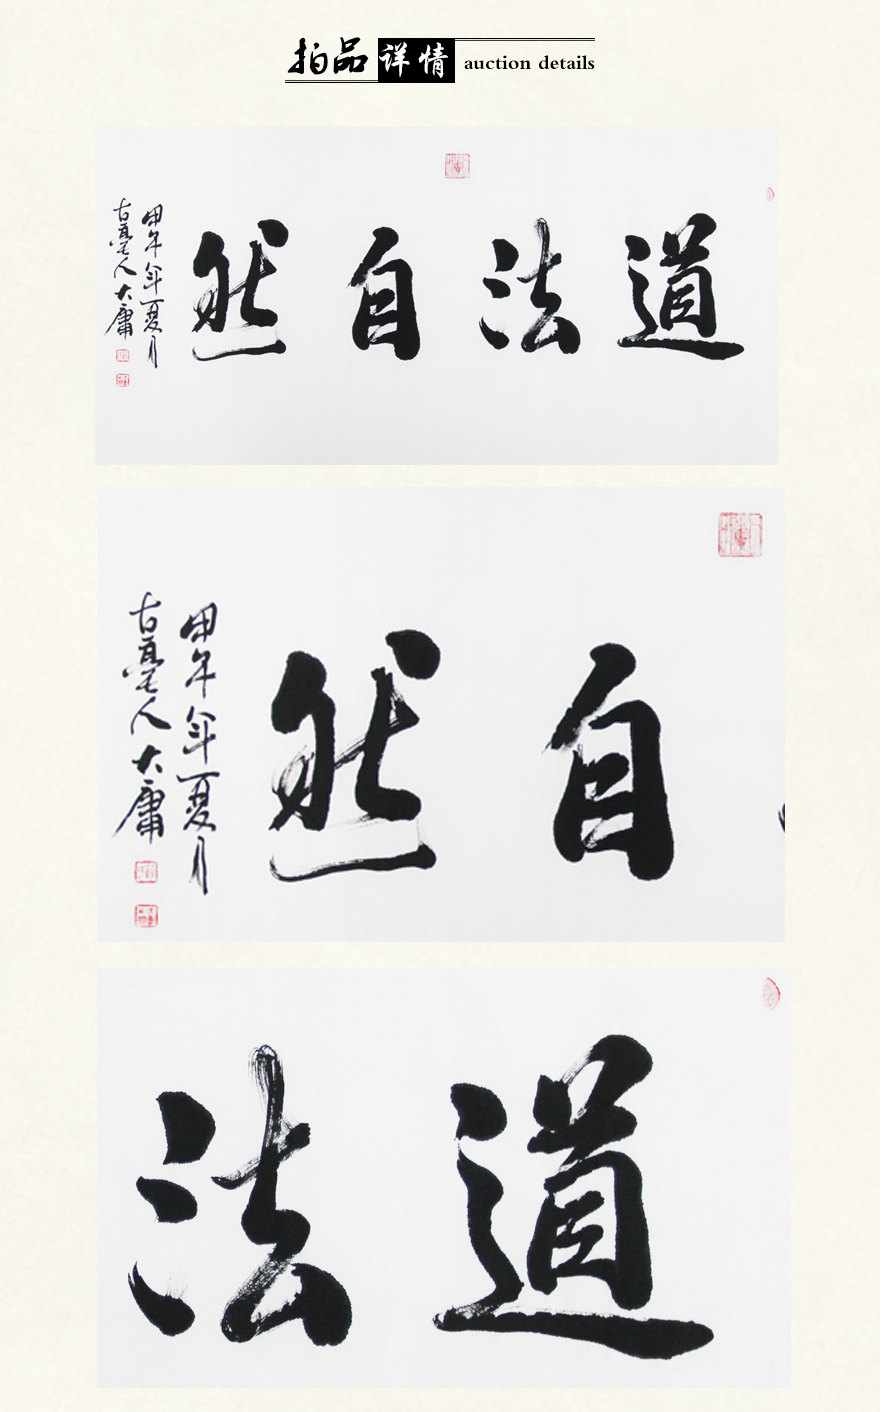 拍品详情 auction details
道法自然
甲午年夏月
古亳人大庸
自然
甲午年夏月
古亳人大庸
道法